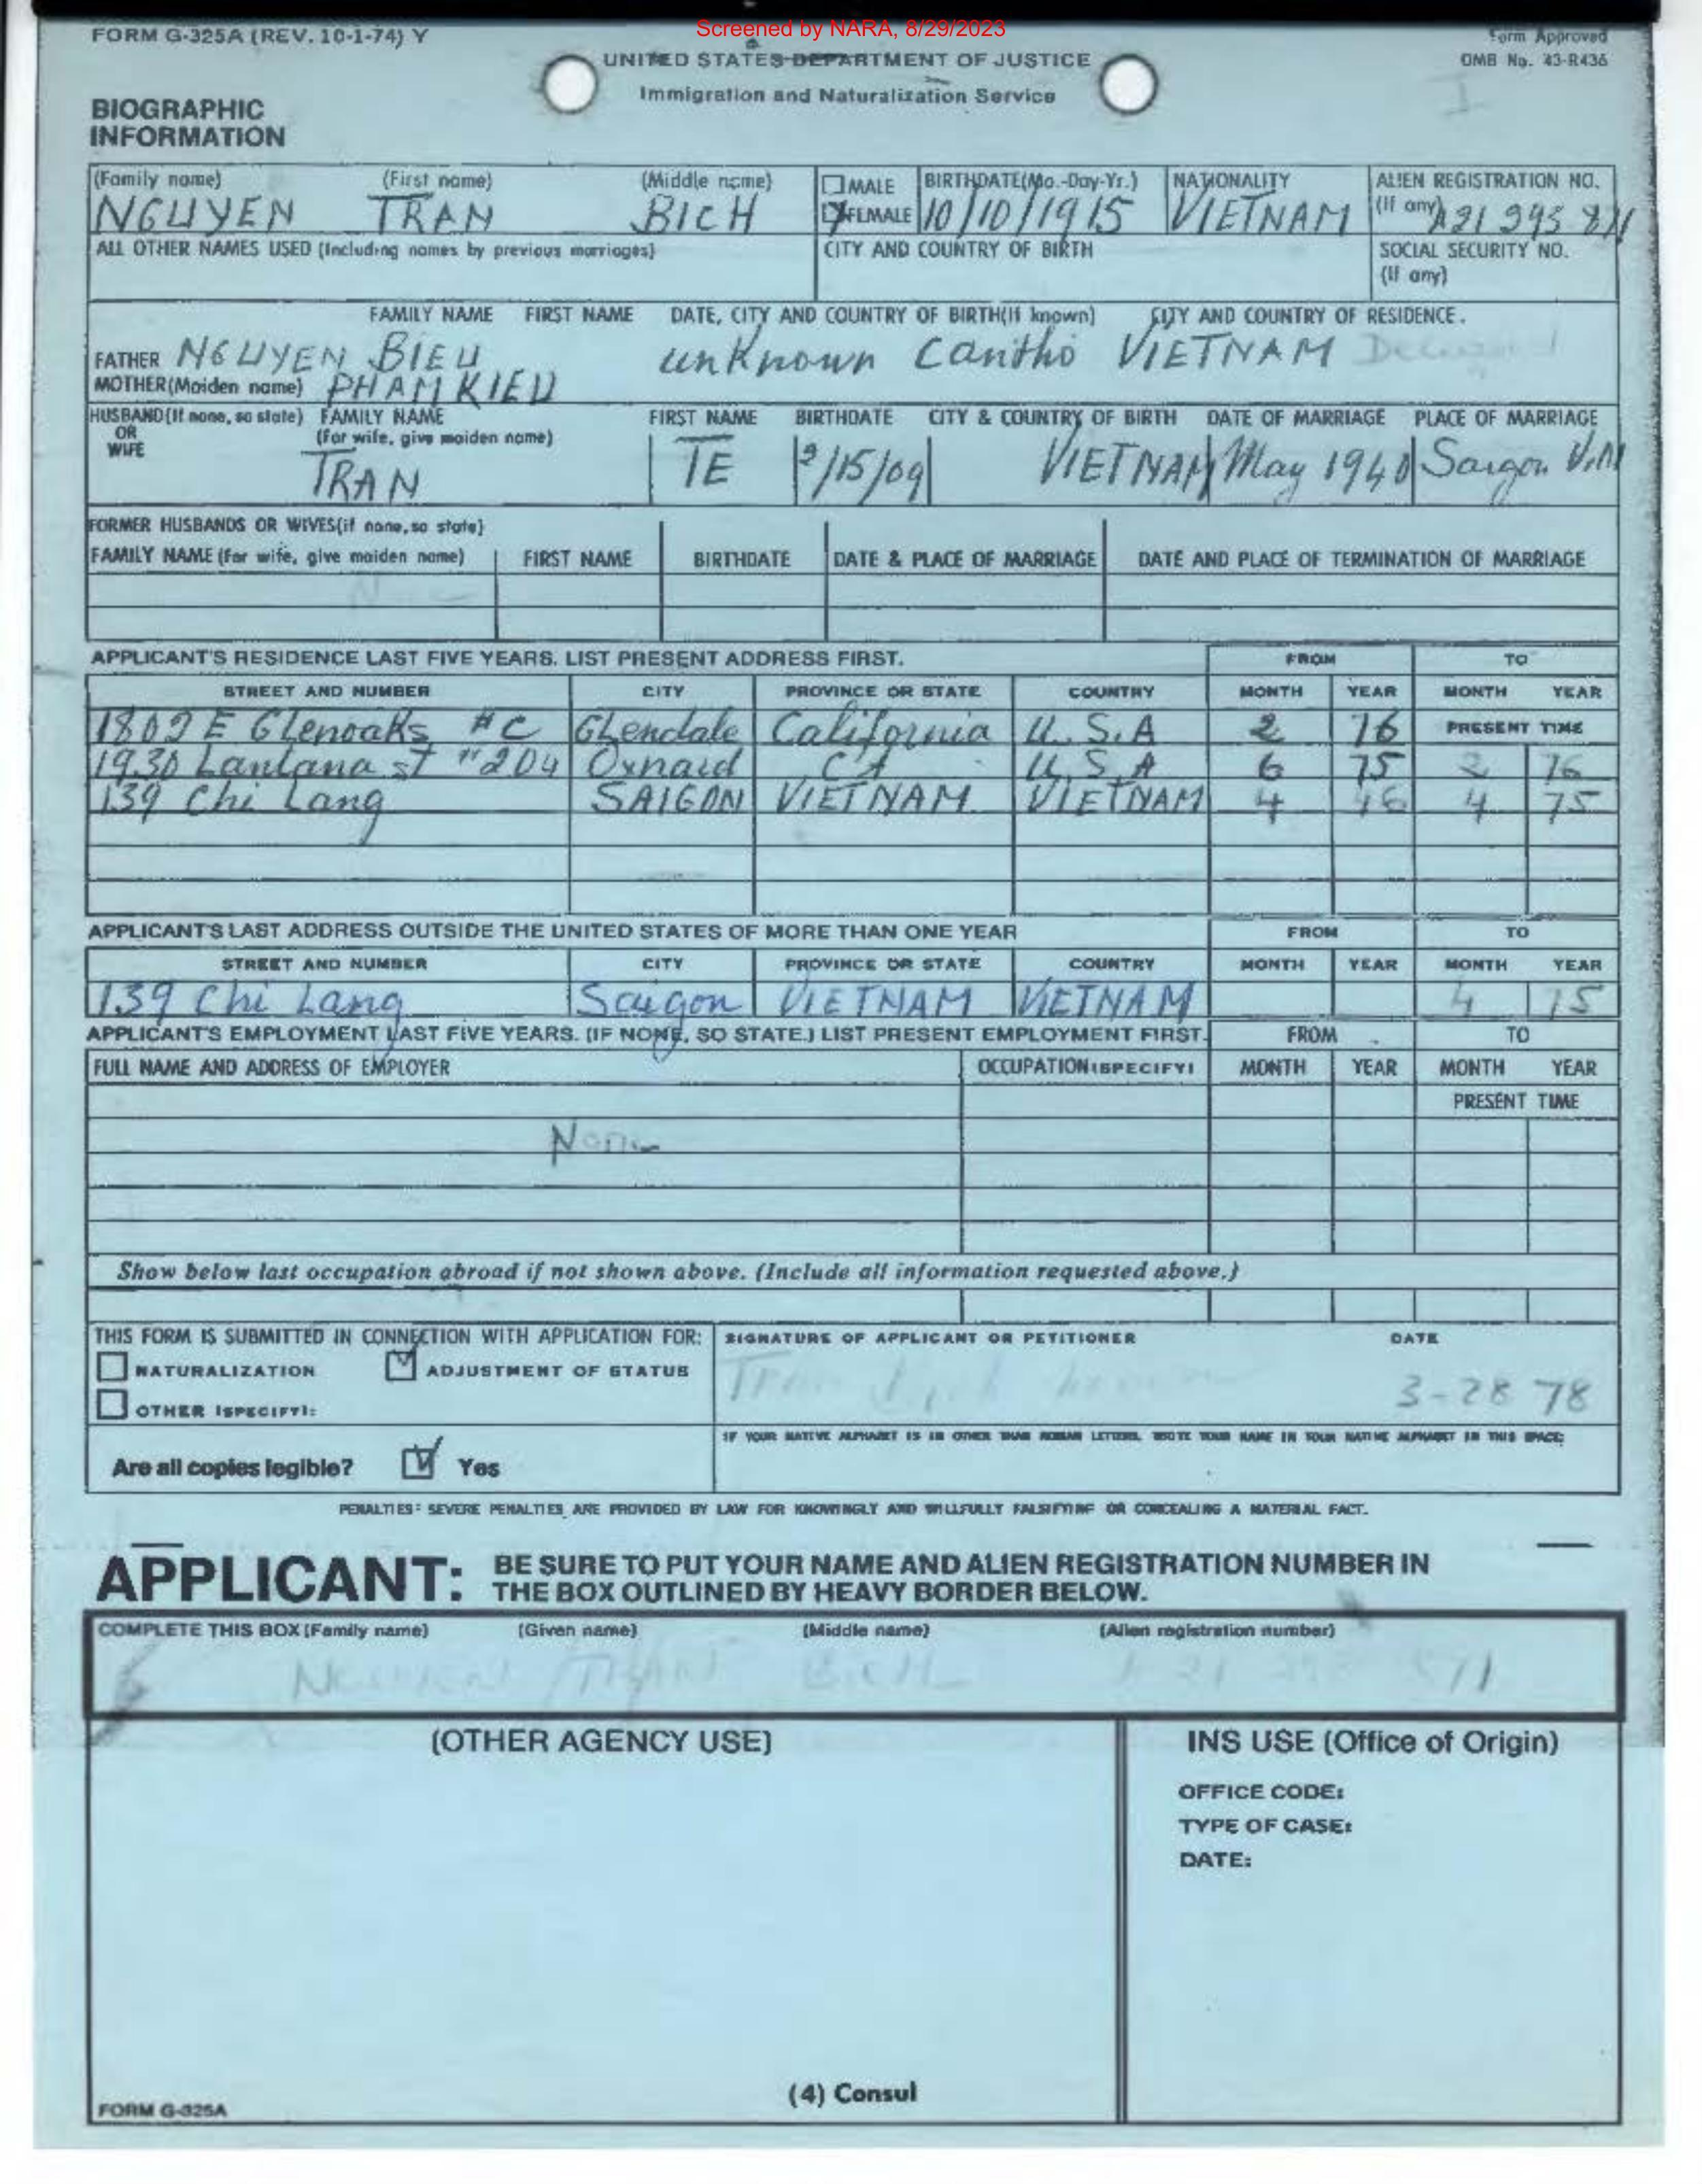 Screened by NARA, 8/29/2023
FORM G-325A (REV. 10-1-74) Y
Form Approved
OMB No. 43-R436
UNITED STATES DEPARTMENT OF JUSTICE
Immigration and Naturalization Service
BIOGRAPHIC
INFORMATION
(Family name) (First name) (Middle name) MALE BIRTHDATE(Mo.-Day-Yr.) NATIONALITY ALIEN REGISTRATION NO.
NGUYEN TRAN BICH FEMALE 10/10/1915 VIETNAM (If any)
ALL OTHER NAMES USED (Including names by previous marriages) CITY AND COUNTRY OF BIRTH SOCIAL SECURITY NO.
(If any)
FAMILY NAME FIRST NAME DATE, CITY AND COUNTRY OF BIRTH(If known) CITY AND COUNTRY OF RESIDENCE.
FATHER NGUYEN BIEU unknown Cantho VIETNAM Deceased
MOTHER(Maiden name) PHAM KIEU
HUSBAND(If none, so state) FAMILY NAME FIRST NAME BIRTHDATE CITY & COUNTRY OF BIRTH DATE OF MARRIAGE PLACE OF MARRIAGE
OR (for wife, give maiden name)
WIFE
TRAN TE 9/15/09 VIETNAM May 1940 Saigon V.N
FORMER HUSBANDS OR WIVES(if none, so state)
FAMILY NAME (For wife, give maiden name) FIRST NAME BIRTHDATE DATE & PLACE OF MARRIAGE DATE AND PLACE OF TERMINATION OF MARRIAGE
None
APPLICANT'S RESIDENCE LAST FIVE YEARS. LIST PRESENT ADDRESS FIRST. FROM TO
STREET AND NUMBER CITY PROVINCE OR STATE COUNTRY MONTH YEAR MONTH YEAR
1809 E Glenoaks #C Glendale California U.S.A 2 76 PRESENT TIME
1930 Lantana st #204 Oxnard CA U.S.A 6 75 2 76
139 Chi Lang SAIGON VIETNAM VIETNAM 4 46 4 75
APPLICANT'S LAST ADDRESS OUTSIDE THE UNITED STATES OF MORE THAN ONE YEAR FROM TO
STREET AND NUMBER CITY PROVINCE OR STATE COUNTRY MONTH YEAR MONTH YEAR
139 Chi Lang Saigon VIETNAM VIETNAM 4 75
APPLICANT'S EMPLOYMENT LAST FIVE YEARS. (IF NONE, SO STATE.) LIST PRESENT EMPLOYMENT FIRST. FROM TO
FULL NAME AND ADDRESS OF EMPLOYER OCCUPATION (SPECIFY) MONTH YEAR MONTH YEAR
PRESENT TIME
None
Show below last occupation abroad if not shown above. (Include all information requested above.)
THIS FORM IS SUBMITTED IN CONNECTION WITH APPLICATION FOR: SIGNATURE OF APPLICANT OR PETITIONER DATE
NATURALIZATION ADJUSTMENT OF STATUS
OTHER (SPECIFY): 3-28 78
IF YOUR NATIVE ALPHABET IS IN OTHER THAN ROMAN LETTERS, WRITE YOUR NAME IN YOUR NATIVE ALPHABET IN THIS SPACE:
Are all copies legible? Yes
PENALTIES: SEVERE PENALTIES ARE PROVIDED BY LAW FOR KNOWINGLY AND WILLFULLY FALSIFYING OR CONCEALING A MATERIAL FACT.
APPLICANT: BE SURE TO PUT YOUR NAME AND ALIEN REGISTRATION NUMBER IN
THE BOX OUTLINED BY HEAVY BORDER BELOW.
COMPLETE THIS BOX (Family name) (Given name) (Middle name) (Alien registration number)
NGUYEN TRAN BICH
(OTHER AGENCY USE) INS USE (Office of Origin)
OFFICE CODE:
TYPE OF CASE:
DATE:
(4) Consul
FORM G-325A